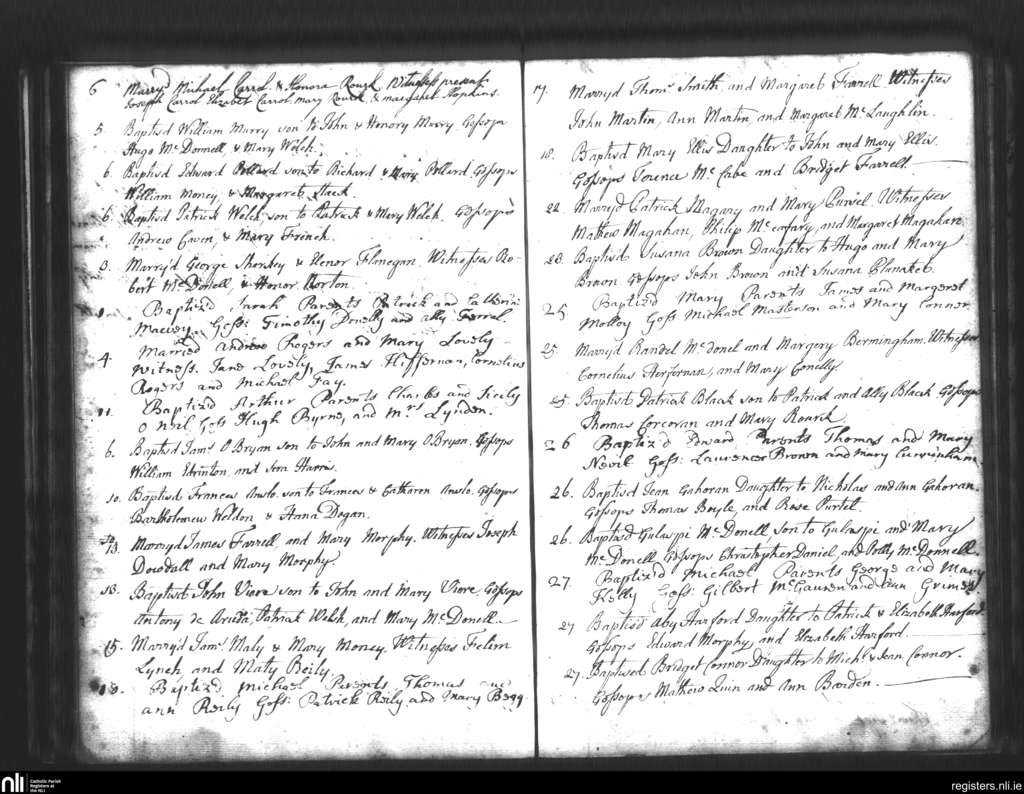 6 Marryd Michael Carrol & Honora Rourk Witnesses present
Joseph Carrol Elizabet Carrol, mary Rourk & margaret Hopkins.
5. Baptisd William Murry son to John & Honory Murry. Gossops
Hugo Mc Donnell, & Mary Welch.
6. Baptisd Edward Pollard son to Richard & Mary Pollard Gossops
William Money, & Margarets Stack
6. Baptisd Patrick Welch son to Patrick & Mary Welch. Gossops
Andrew Caven, & Mary French.
3. Marry'd George Shonkey & Elenor Flanegan. Witnesses Ro-
bert McDonell, & Honor Norton.
Baptiz'd Sarah Parents Patrick and Catherin
Macvey. Goss: Timothy Donelly and ally Farrel.
4. Married andrew Rogers and Mary Lovely
witness. Jane Lovely, James Hiffernan, Cornelius
Rogers and Michael Fay.
11. Baptiz'd Arthur Parents Charles and Sicily
O Neil, Goss Hugh Byrne, and Mrs Lynden.
6. Baptisd Jams O Bryan son to John and Mary O Bryan. Gossops
William Edrinton, and Sera Harris.
10. Baptisd Frances Anslo. son to Frances & Catharen Anslo. Gossopes
Bartholomew Weldon & Anna Dogan.
13. Marryd James Farrell, and Mary Morphy. Witnesses Joseph
Dowdall and Mary Morphy.
13. Baptisd John Viore son to John and Mary Viore Gossops
Antony de Aruda, Patriak Welsh, and Mary McDonell.
15. Marry'd Jams Maly & Mary Money. Witnesses Felim
Lynch and Maty Reily.
18. Baptiz'd michael Parents Thomas and
ann Reily Goss: Patrick Reily and Mary Begg
17. Marryd Thoms Smith, and Margaret Farrell. Witnesses
John Martin, Ann Martin, and Margaret McLaughlin.
18. Baptisd Mary Ellis Daughter to John and Mary Ellis.
Gossops Mc Cabe and Bridget Farrell.
22. Marryd Patrick Magary and Mary Purcel Witnesses
Mathew Magahan, Philip Mcenfary, and Margaret Magahan.
23. Baptisd Susana Brown Daughter to Hugo and Mary
Brown Gossops John Brown and Susana
25 Baptiz'd Mary Parents James and Margeret
Molloy Goss Michael Masterson and Mary Conner
25. Marryd Randel Mcdonel and Margery Bermingham. Witnesses
Cornelius Herfernan, and Mary Conelly.
25. Baptisd Patrick Black son to Patrick and Ally Black Gossops
Thomas Corcoran and Mary Rourk.
26 Baptiz'd Edward Parents Thomas and Mary
Nevil Goss: Laurence Brown and Mary Curninham.
26. Baptisd Jean Gahoran Daughter to Nicholas and Ann Gahoran.
Gossops Thomas Boyle, and Rose Purtel.
26. Baptisd Gulaspi McDonell son to Gulaspi and Mary
McDonell Gossops Christopher Daniel, and Polly McDonnell.
27. Baptiz'd Michael Parents George and Mary
Kelly Goss: Gilbert McGauren and Ann Grimes.
27 Baptisd Aby Harford Daughter to Patrick & Elizabeth Harford
Gossops Edward Morphy and Elizabeth Harford.
27. Baptised Bridget Connor Daughter to Michl & Jean Connor.
Gossops Mathew Quin and Ann Bowden.
nli
Catholic Parish
Registers at
the NLI
registers.nli.ie